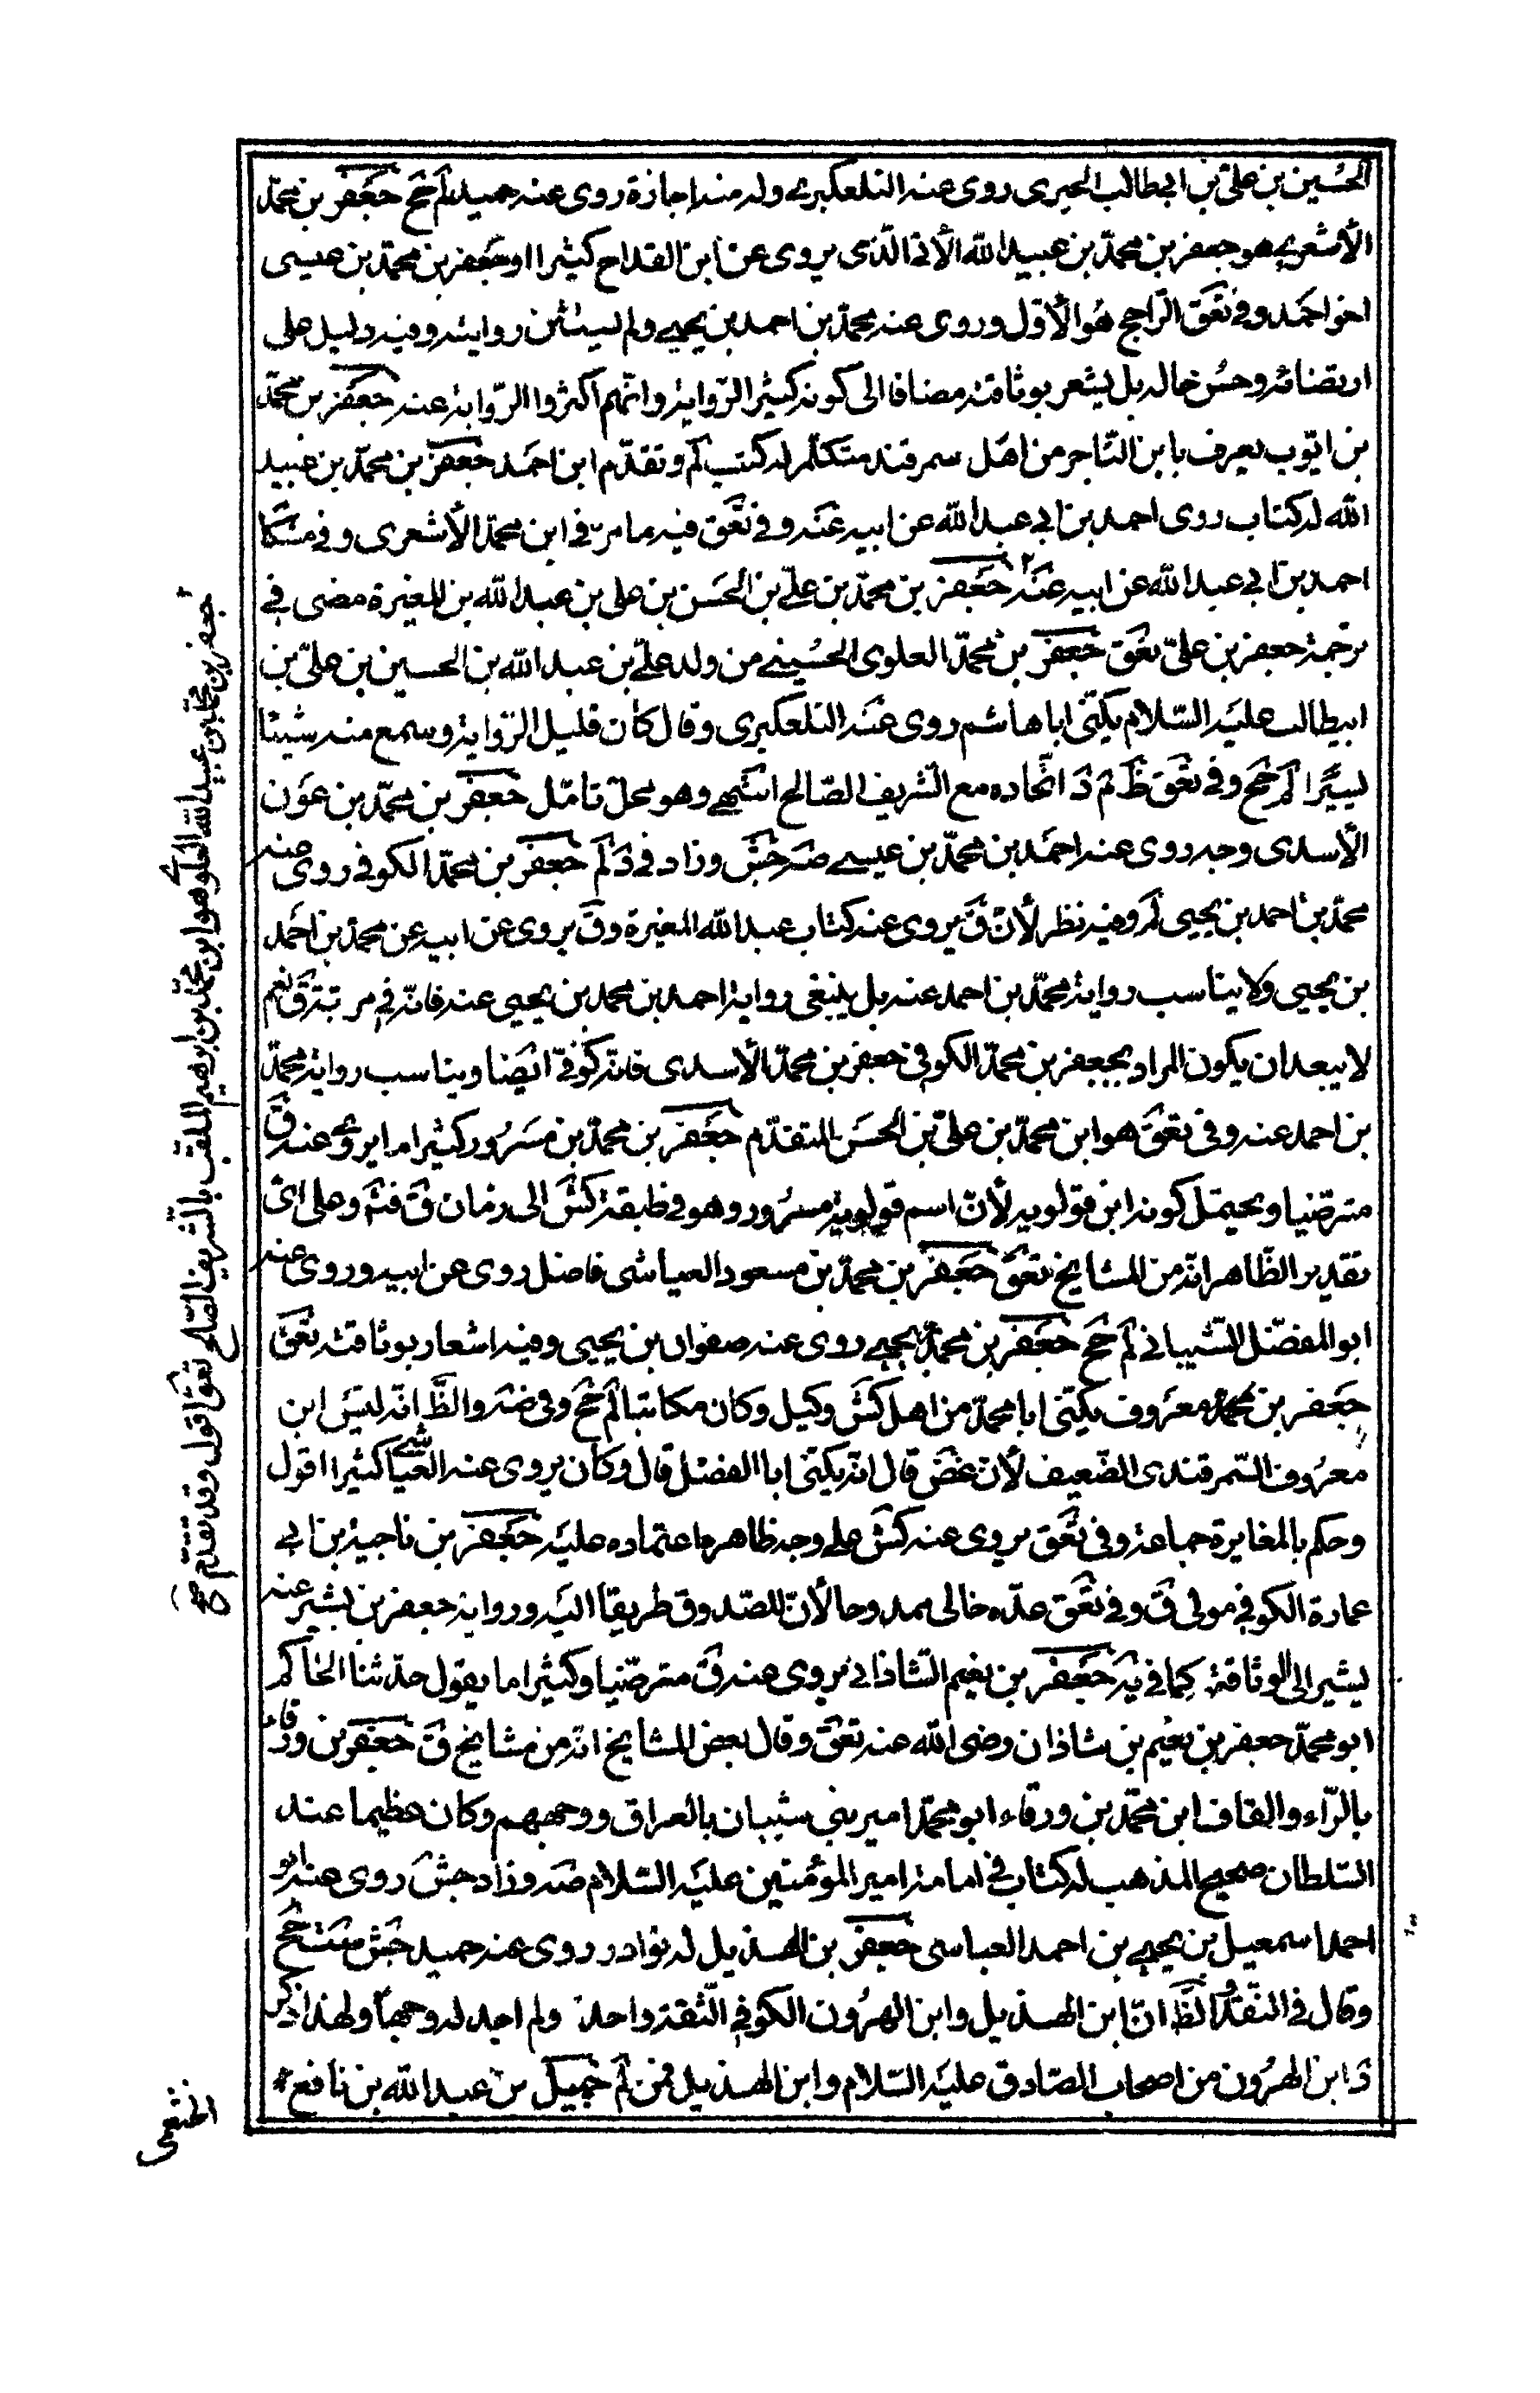 الحسين بن علي بن ابيطالب الحيرى روى عنه التلعكبرى وله منه اجازة روى عنه حميد لم جخ جعفر بن محمّد
الأشعري هو جعفر بن محمّد بن عبيد الله الآتي الّذى يروى عن ابن القداح كثيرا او جعفر بن محمّد بن عيسى
اخو احمد وفي تعق الرّاجح هو الأوّل وروى عنه محمّد بن احمد بن يحيى ولم يستثن روايته وفيه دليل على
ارتضائه وحسن حاله بل يشعر بوثاقته مضافا الى كونه كثير الرّواية وانّهم اكثروا الرّواية عنه جعفر بن محمّد
بن ايّوب يعرف بابن التّاجر من اهل سمرقند متكلّم له كتب لم وتقدّم ابن احمد جعفر بن محمّد بن عبيد
الله له كتاب روى احمد بن ابي عبد الله عن ابيه عنه وفي تعق فيه ما مرّ في ابن محمّد الأشعرى وفي مشكا
احمد بن ابي عبد الله عن ابيه عنه جعفر بن محمّد بن عليّ بن الحسن بن على بن عبد الله بن المغيرة مضى في
ترجمة جعفر بن عليّ تعق جعفر بن محمّد العلوى الحسيني من ولد عليّ بن عبد الله بن الحسين بن عليّ بن
ابيطالب عليه السّلام يكنّى ابا هاشم روى عنه التلعكبرى وقال كان قليل الرّواية وسمع منه شيئا
يسيرا لم جخ وفي تعق ظ لم د اتّحاده مع الشريف الصّالح انتهى وهو محلّ تامّل جعفر بن محمّد بن عون
الأسدى وجه روى عنه احمد بن محمّد بن عيسى صه جش وزاد في د لم جعفر بن محمّد الكوفي روى عنه
محمّد بن احمد بن يحيى لم وفيه نظر لأنّ ق يروى عنه كتاب عبد الله المغيرة وق يروى عن ابيه عن محمّد بن احمد
بن يحيى ولا يناسب رواية محمّد بن احمد عنه بل ينبغى رواية احمد بن محمد بن يحيى عنه فانّه في مرتبة ق نعم
لا يبعد ان يكون المراد بجعفر بن محمّد الكوفي جعفر بن محمّد الأسدى فانّه كوفيّ ايضا ويناسب رواية محمّد
بن احمد عنه وفي تعق هو ابن محمّد بن علىّ بن الحسن المتقدّم جعفر بن محمّد بن مسرور كثيرا ما يروى عنه ق
مترضّيا ويحتمل كونه ابن قولويه لأنّ اسم قولويه مسرور وهو في طبقة كش الى زمان ق فتد وعلى اىّ
تقدير الظّاهر انّه من المشايخ تعق جعفر بن محمّد بن مسعود العياشى فاضل روى عن ابيه وروى عنه
ابو المفضّل الشّيباني لم جخ جعفر بن محمّد بن يحيى روى عنه صفوان بن يحيى وفيه اشعار بوثاقته تعق
جعفر بن محمّد معروف يكنّى ابا محمّد من اهل كش وكيل وكان مكاتبا لم جخ وفي صه والظّ انّه ليس ابن
معروف السّمرقندى الضّعيف لأنّ غض قال انّه يكنى ابا الفضل قال وكان يروى عنه العيّاشي كثيرا اقول
وحكم بالمغايرة جماعة وفي تعق يروى عنه كش على وجه ظاهره اعتماده عليه جعفر بن ناجية بن ابي
عمارة الكوفي مولى ق وفي تعق عدّه خالى ممدوحا لأنّ للصّدوق طريقا اليه ورواية جعفر بن بشير عنه
يشير الى الوثاقة كما في يه جعفر بن نعيم الشّاذاني يروى عنه ق مترضّيا وكثيرا ما يقول حدّثنا الحاكم
ابو محمّد جعفر بن نعيم بن شاذان رضى الله عنه تعق وقال بعض المشايخ انّه من مشايخ ق جعفر بن ورقاء
بالرّاء والقاف ابن محمّد بن ورقاء ابو محمّد امير بني شيبان بالعراق ووجههم وكان عظيما عند
السّلطان صحيح المذهب له كتاب في امامة امير المؤمنين عليه السّلام صه وزاد جش روى عنه ابو
احمد اسمعيل بن يحيى بن احمد العباسى جعفر بن الهذيل له نوادر روى عنه حميد جش جخ
وقال في النّقد الظّ انّ ابن الهذيل وابن الهرون الكوفي الثّقة واحد ولم اجد له وجها ولهذا ذكر
د ابن الهرون من اصحاب الصّادق عليه السّلام وابن الهذيل فمن لم جميل بن عبد الله بن نافع
الخثعمى
جعفر بن محمّد بن عبيد الله العلوى هو ابن محمّد بن ابرهيم الملقّب بالشّريف الصّالح تعق اقول وقد تقدّم صح